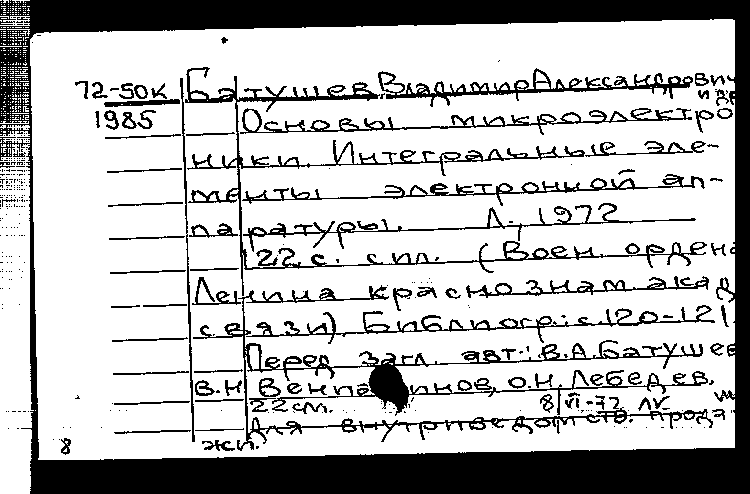 72-50к Батушев Владимир Александрович
и др
1985 Основы микроэлектро
ники. Интегральные эле-
менты электронной ап-
паратуры. Л., 1972
122 с. с ил. (Воен. ордена
Ленина краснознам. акад
связи). Библиогр.: с. 120-121
Перед загл. авт.: В.А. Батушев
В.Н. О.Н. Лебедев.
22 см. 8/VI-72 ЛК
Для внутриведомств. прода
8 жл.